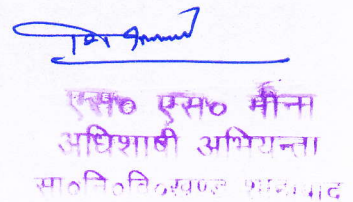 एस० एस० मीना
अधिशाषी अभियन्ता
सा०नि०वि०खण्ड